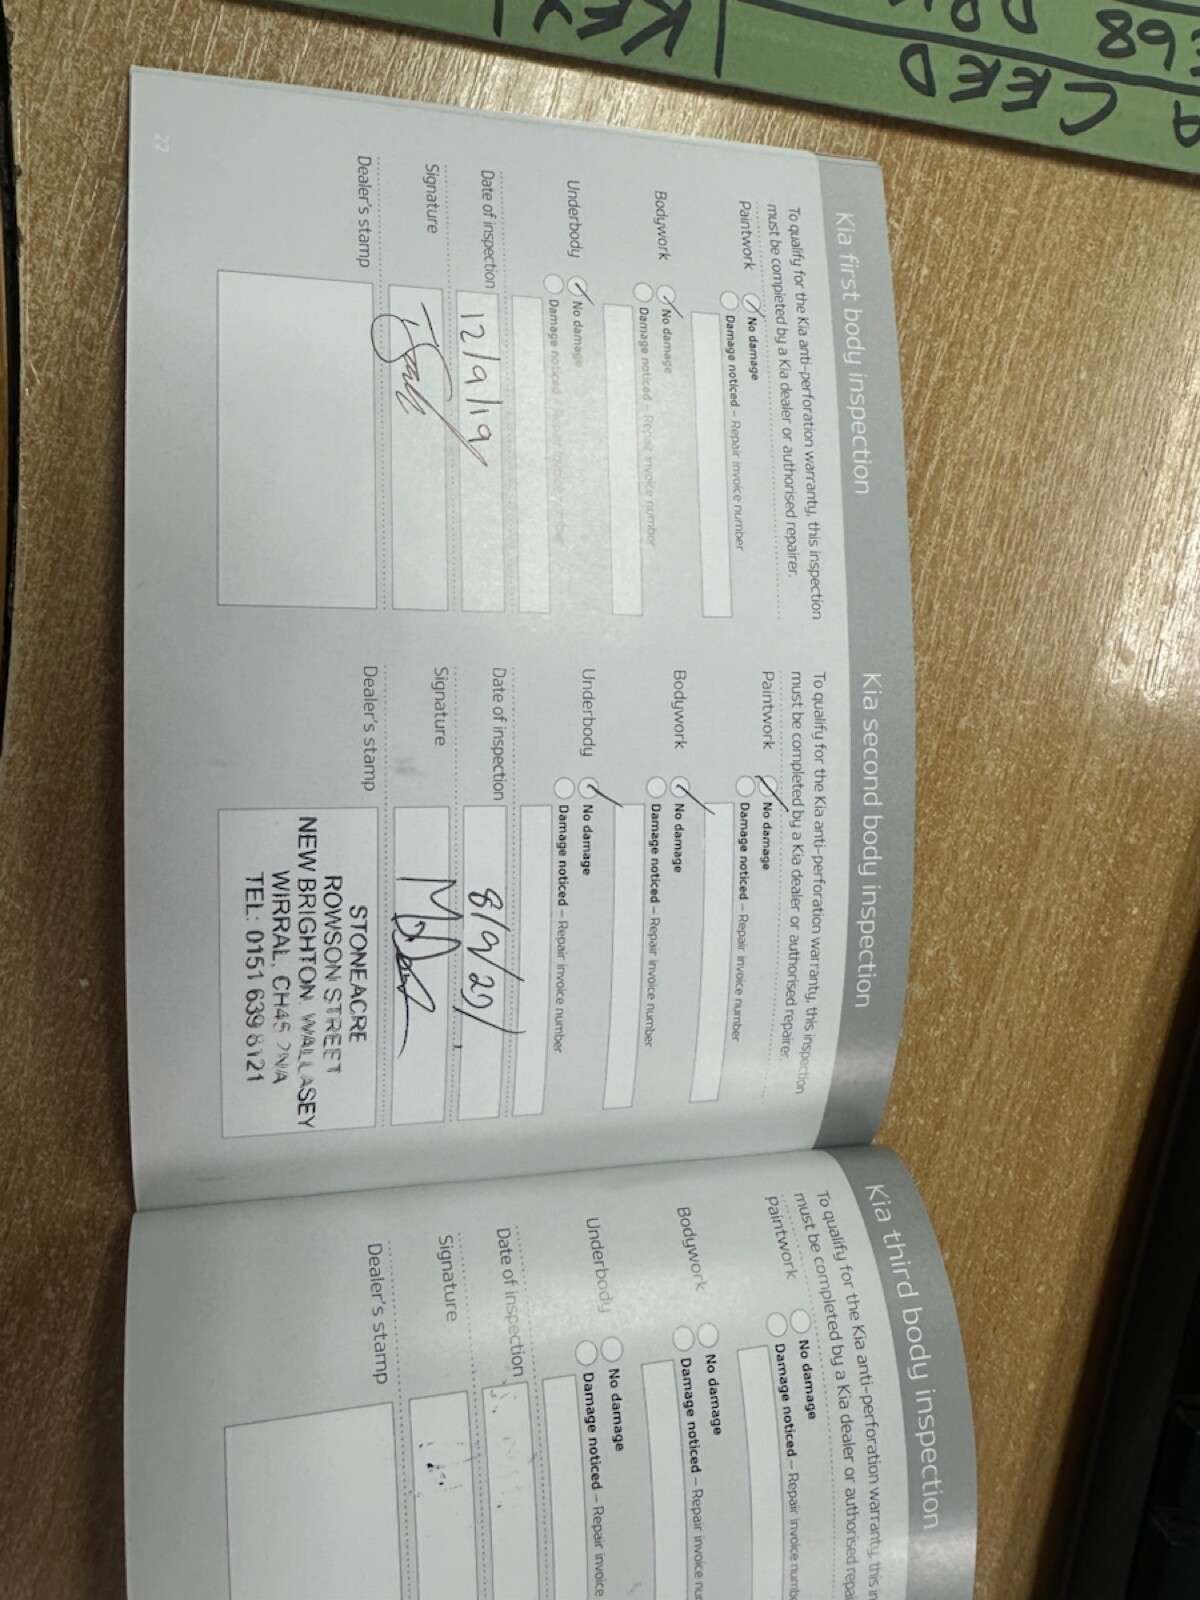 KEY
CEED
68
Kia first body inspection
To qualify for the Kia anti-perforation warranty, this inspection
must be completed by a Kia dealer or authorised repairer.
Paintwork
No damage
Damage noticed – Repair invoice number
Bodywork
No damage
Damage noticed – Repair invoice number
Underbody
No damage
Damage noticed – Repair invoice number
Date of inspection
12/9/19
Signature
Dealer's stamp
22
Kia second body inspection
To qualify for the Kia anti-perforation warranty, this inspection
must be completed by a Kia dealer or authorised repairer.
Paintwork
No damage
Damage noticed – Repair invoice number
Bodywork
No damage
Damage noticed – Repair invoice number
Underbody
No damage
Damage noticed – Repair invoice number
Date of inspection
8/9/20
Signature
Dealer's stamp
STONEACRE
ROWSON STREET
NEW BRIGHTON WALLASEY
WIRRAL, CH45
TEL: 0151 639 8121
Kia third body inspection
To qualify for the Kia anti-perforation warranty, this in
must be completed by a Kia dealer or authorised repai
Paintwork
No damage
Damage noticed – Repair invoice numb
Bodywork
No damage
Damage noticed – Repair invoice nu
Underbody
No damage
Damage noticed – Repair invoice
Date of inspection
Signature
Dealer's stamp